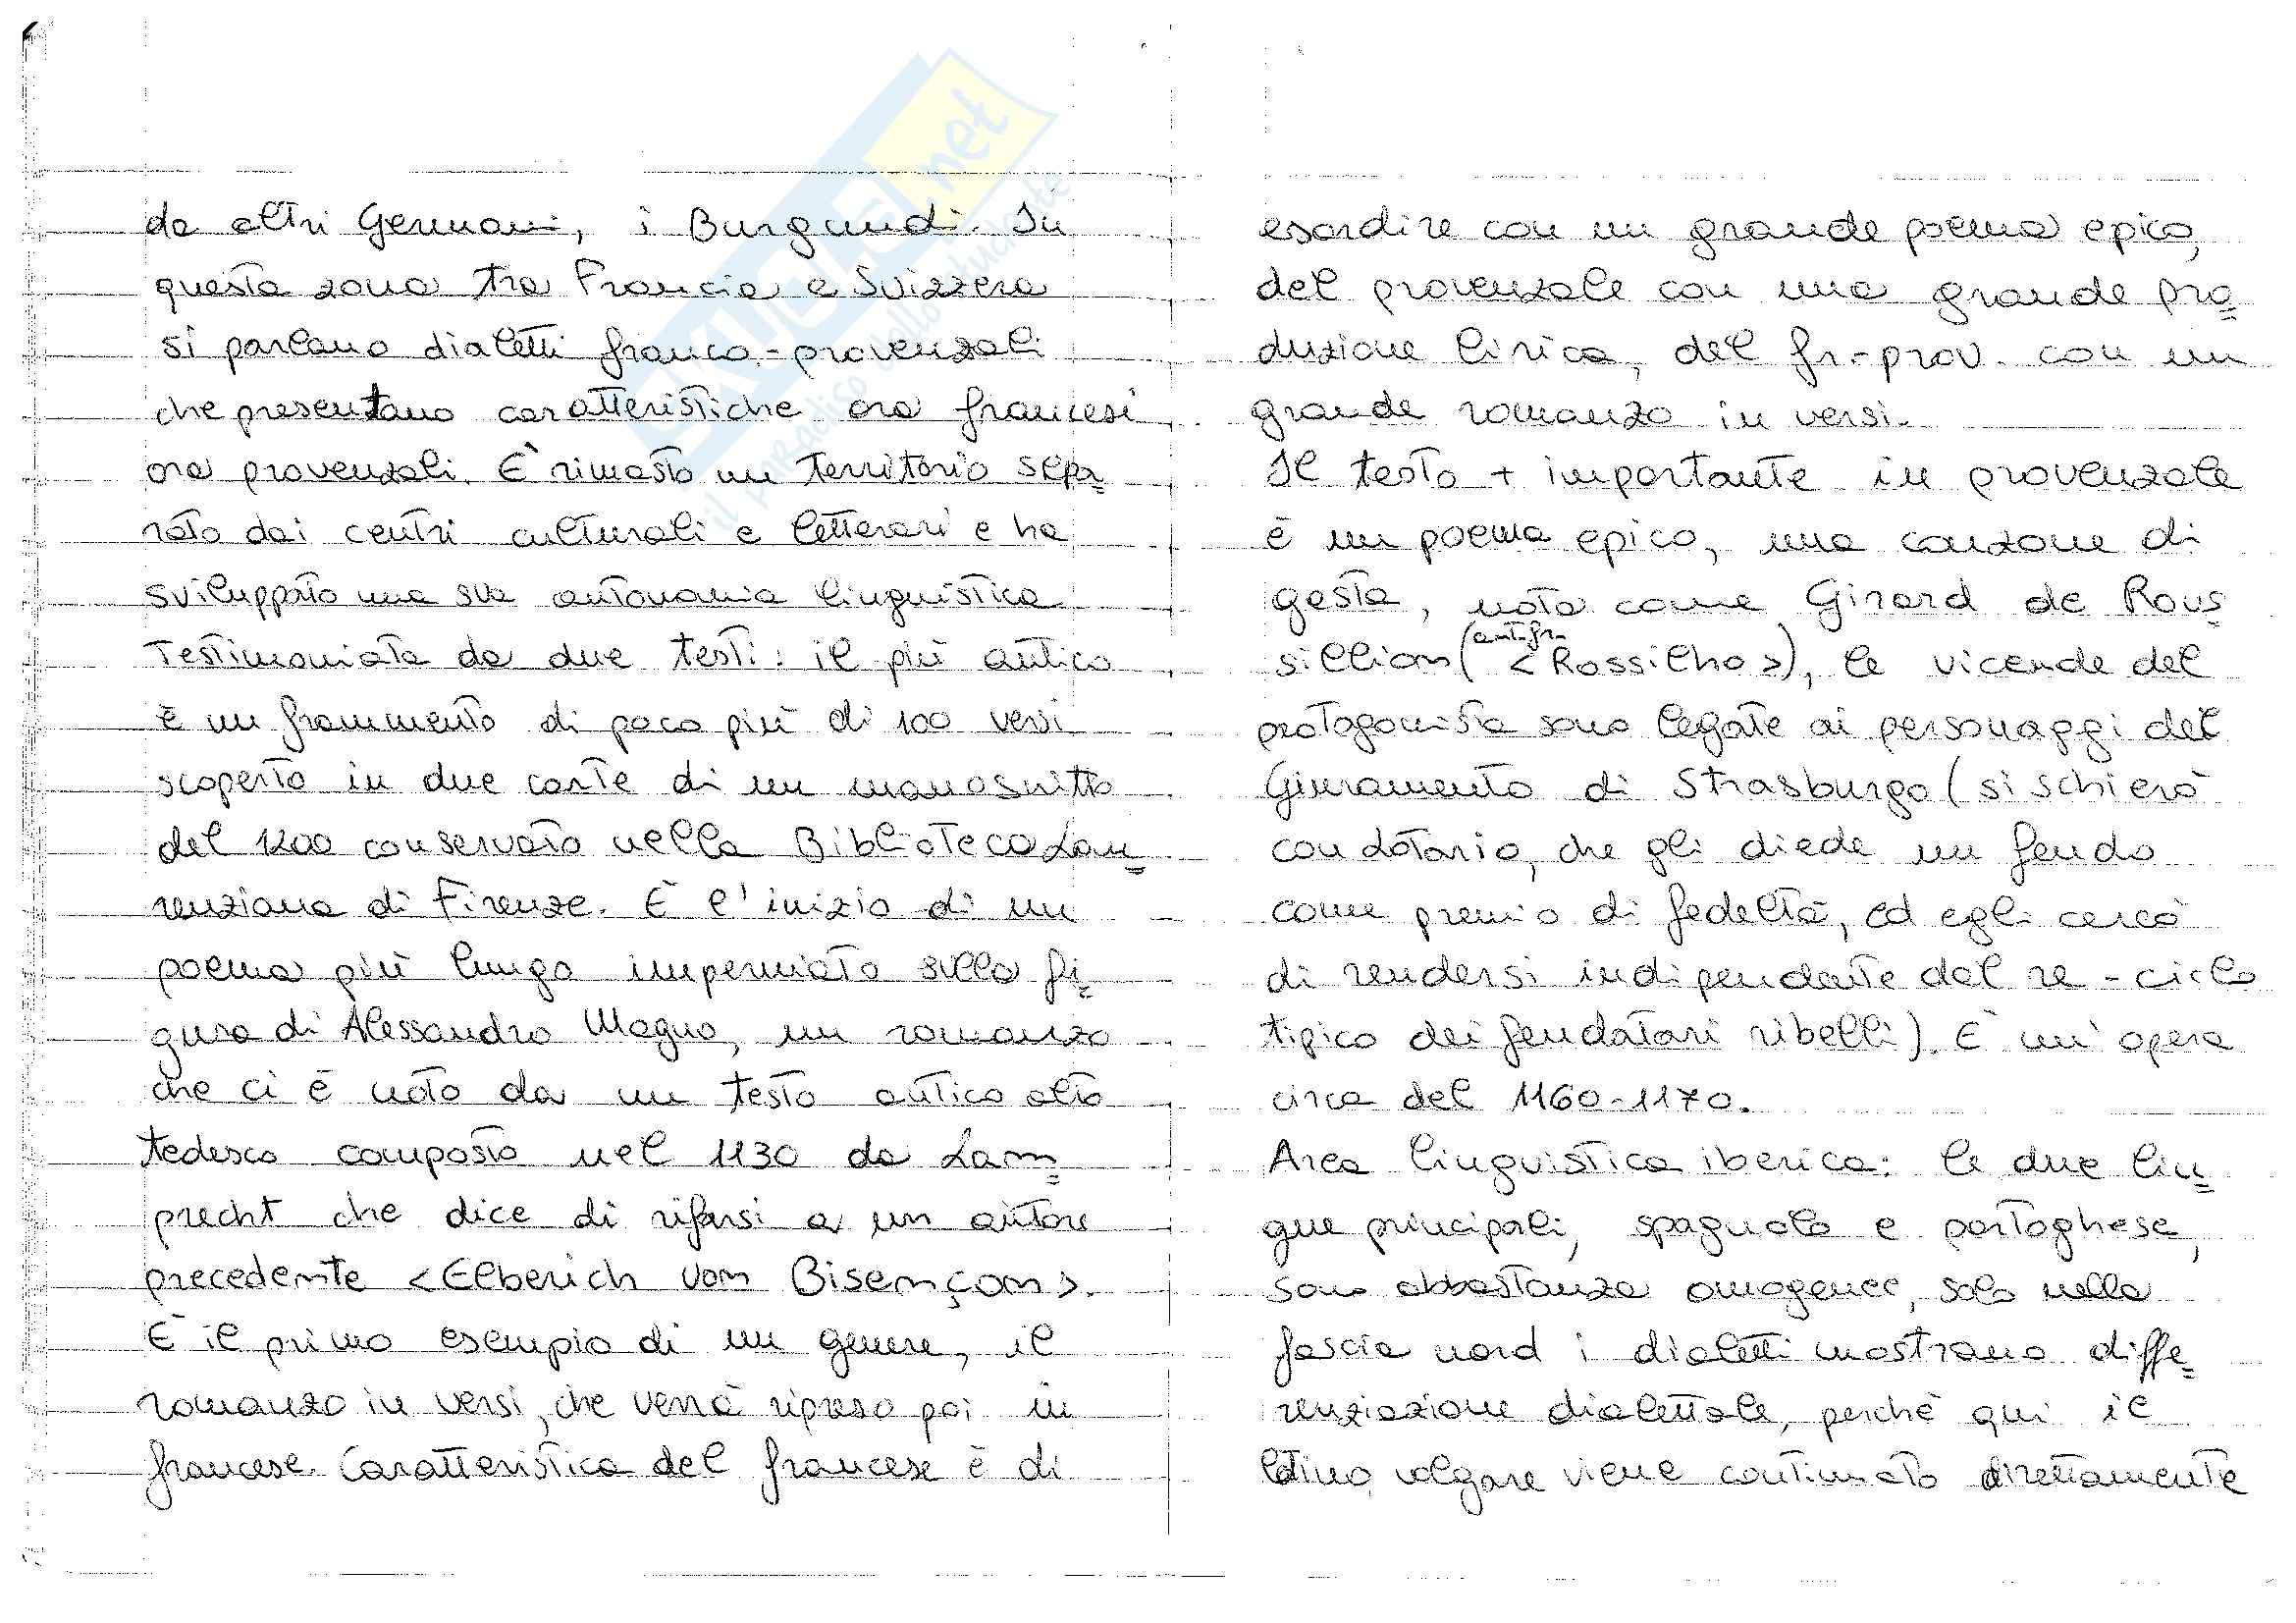 da altri Germani, i Burgundi. In
questa zona tra Francia e Svizzera
si parlano dialetti franco-provenzali
che presentano caratteristiche ora francesi
ora provenzali. È rimasto un territorio sepa=
rato dai centri culturali e letterari e ha
sviluppato una sua autonomia linguistica
testimoniata da due testi: il più antico
è un frammento di poco più di 100 versi
scoperto in due carte di un manoscritto
del 1200 conservato nella Biblioteca Lau=
renziana di Firenze. È l'inizio di un
poema più lungo imperniato sulla fi=
gura di Alessandro Magno, un romanzo
che ci è noto da un testo antico alto
tedesco composto nel 1130 da Lam=
precht che dice di rifarsi a un autore
precedente <Elberich von Bisençon>.
È il primo esempio di un genere, il
romanzo in versi, che verrà ripreso poi in
francese. Caratteristica del francese è di
esordire con un grande poema epico,
del provenzale con una grande pro=
duzione lirica, del fr.-prov. con un
grande romanzo in versi.
Il testo + importante in provenzale
è un poema epico, una canzone di
gesta, nota come Girard de Rous=
sillion (ant. fr. <Rossilho>), le vicende del
protagonista sono legate ai personaggi del
Giuramento di Strasburgo (si schierò
con Lotario, che gli diede un feudo
come premio di fedeltà, ed egli cercò
di rendersi indipendente dal re - ciclo
tipico dei feudatari ribelli). È un'opera
circa del 1160-1170.
Area linguistica iberica: le due lin=
gue principali, spagnolo e portoghese,
sono abbastanza omogenee, solo nella
fascia nord i dialetti mostrano diffe=
renziazione dialettale, perchè qui il
latino volgare viene continuato direttamente
SKUOLA.net
il paradiso dello studente